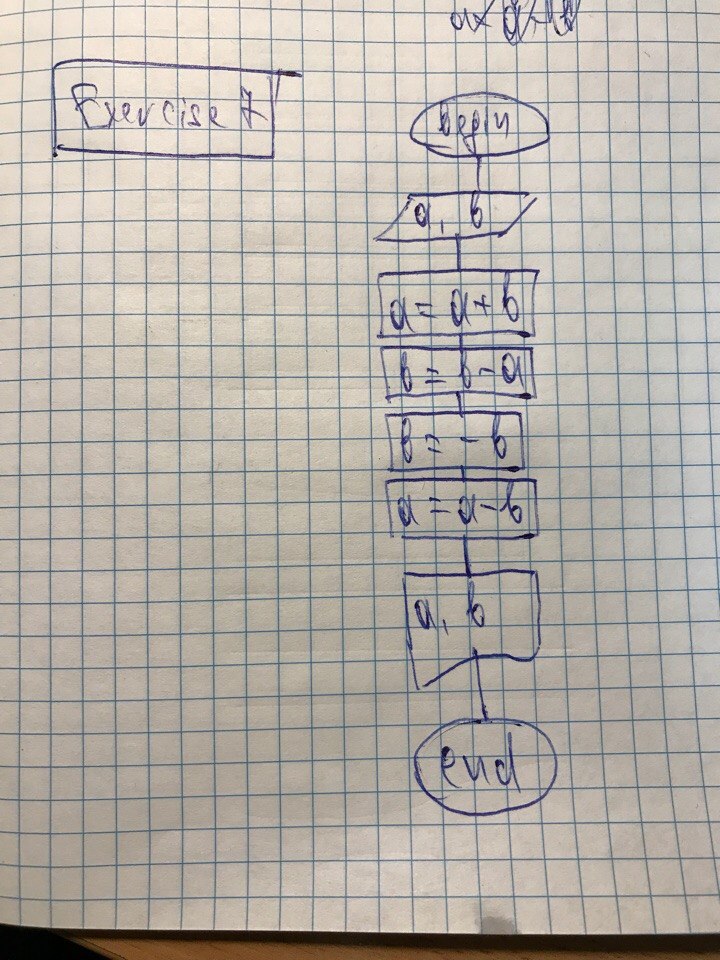 Exercise 7
begin
a, b
a = a + b
b = b - a
b = - b
a = a - b
a, b
end